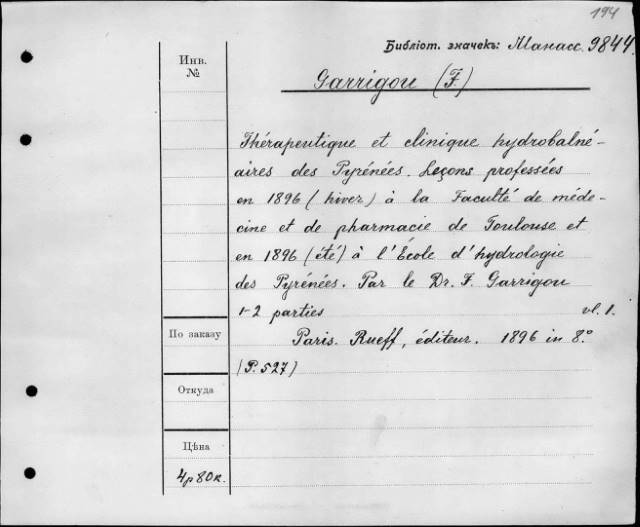 194
Библіот. значекъ: Манасс. 9844.
Инв.
№
Garrigou (F.)
Thérapeutique et clinique hydrobalné-
aires des Pyrénées. Leçons professées
en 1896 (hiver) à la Faculté de méde-
cine et de pharmacie de Toulouse et
en 1896 (été) à l'École d'hydrologie
des Pyrénées. Par le Dr. F. Garrigou
1-2 parties vl. 1.
По заказу
Paris. Rueff, éditeur. 1896 in 8.°
(P. 527)
Откуда
Цѣна
4р 80к.